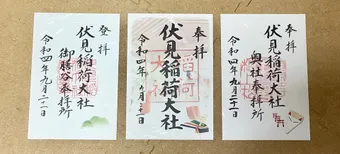 登拝
伏見稲荷大社
御膳谷奉拝所
令和四年九月二十一日
奉拝
伏見稲荷大社
令和四年九月二十一日
奉拝
伏見稲荷大社
奥社奉拝所
令和四年九月二十一日